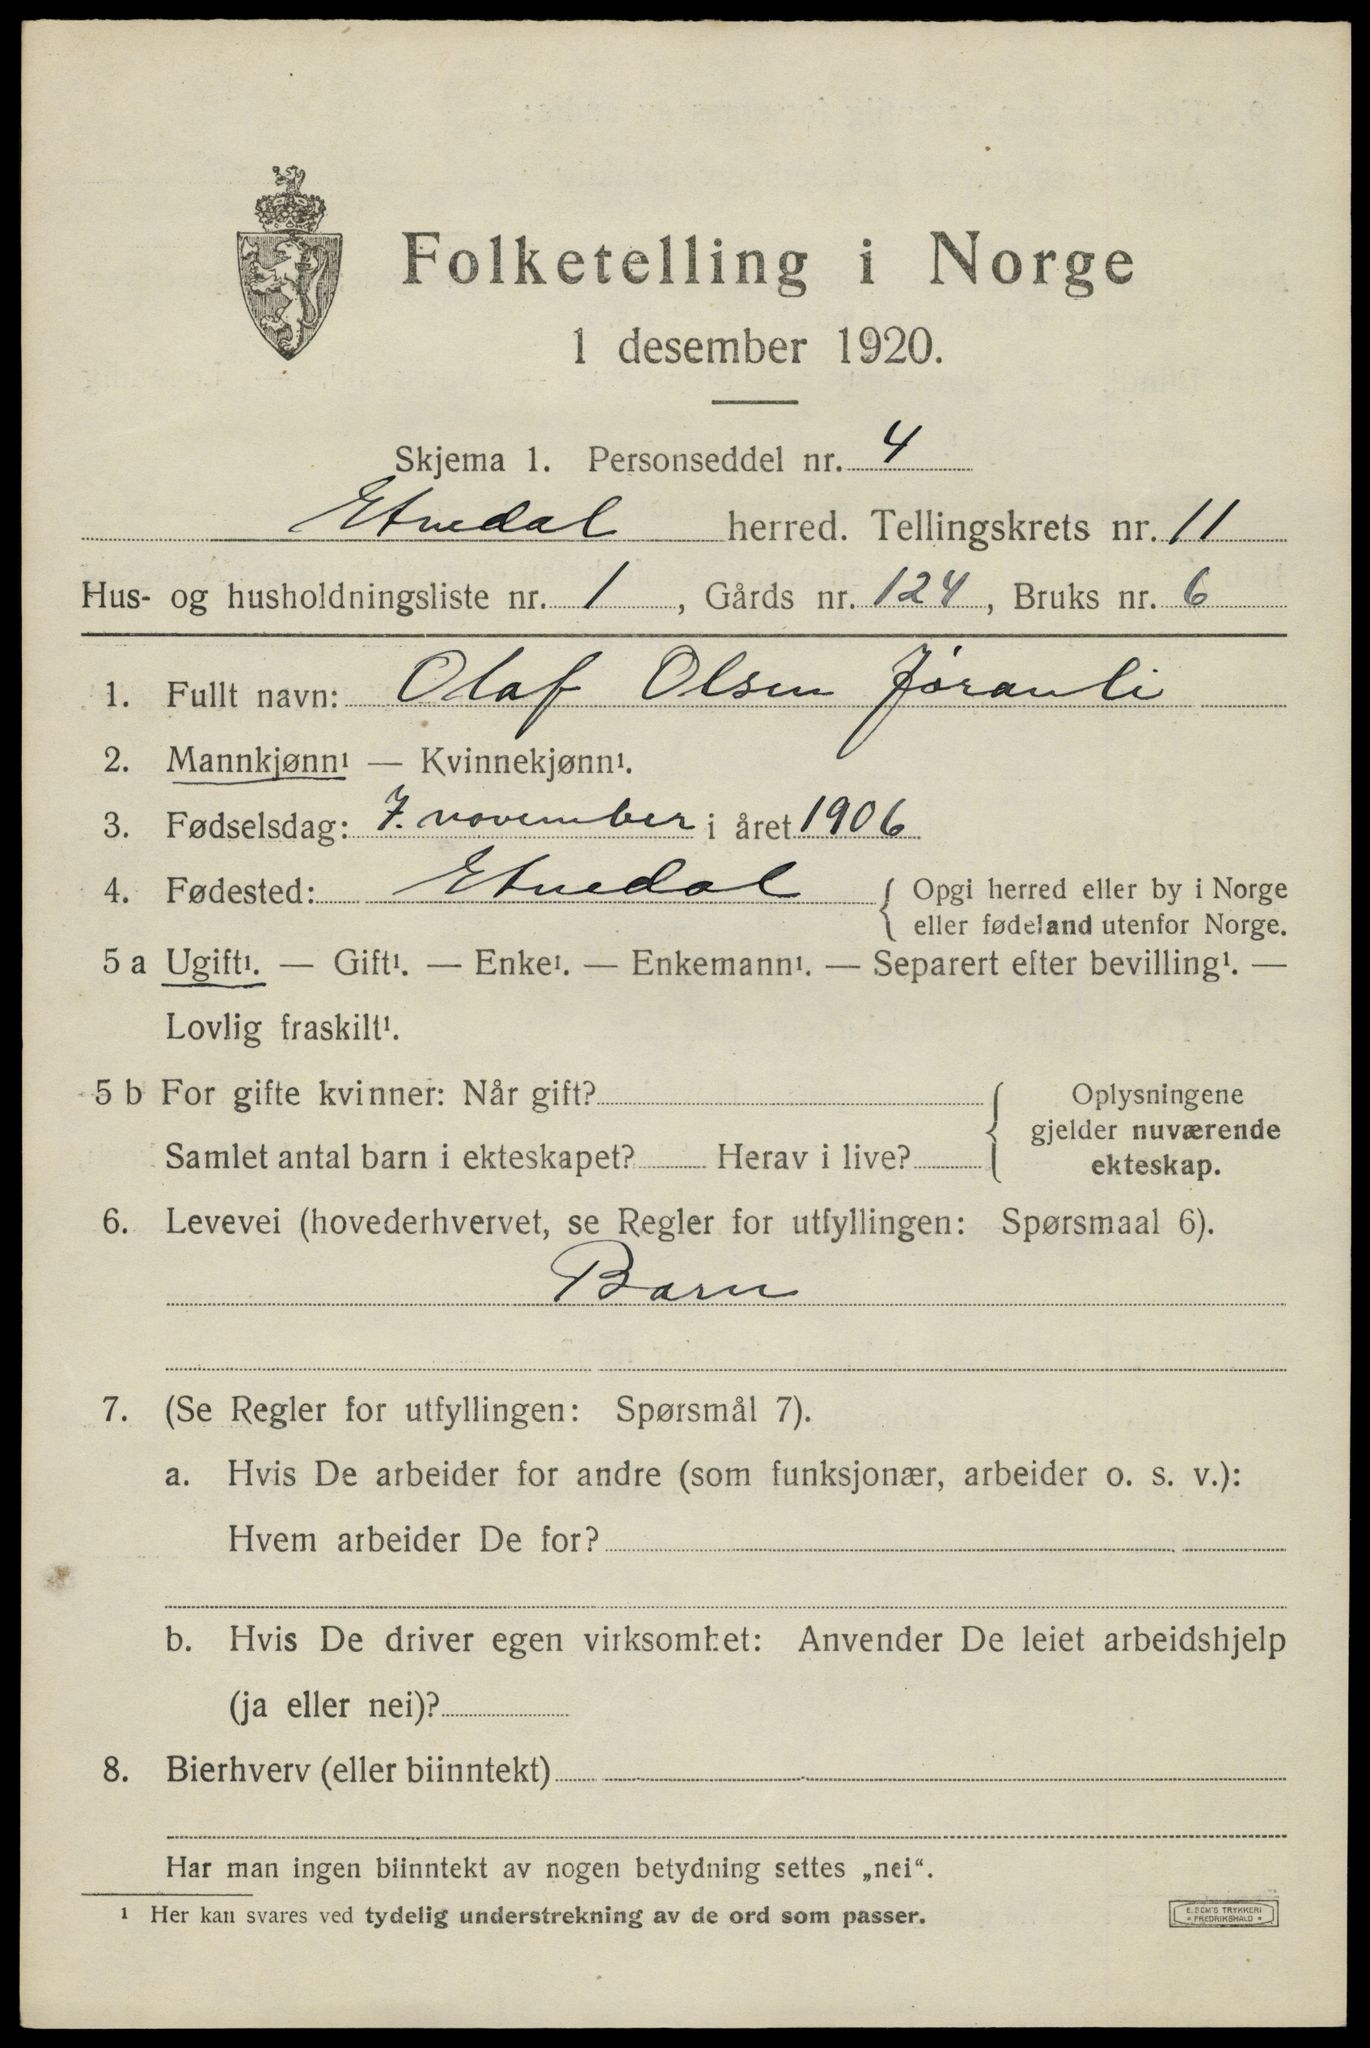 Folketelling i Norge
1 desember 1920.
Skjema 1. Personseddel nr. 4
Etnedal herred. Tellingskrets nr. 11
Hus- og husholdningsliste nr. 1, Gårds nr. 124, Bruks nr. 6
1. Fullt navn: Olaf Olsen Jöranli
2. Mannkjønn¹ — Kvinnekjønn¹.
3. Fødselsdag: 7. november i året 1906
4. Fødested: Etnedal { Opgi herred eller by i Norge
eller fødeland utenfor Norge.
5 a Ugift¹. — Gift¹. — Enke¹. — Enkemann¹. — Separert efter bevilling¹. —
Lovlig fraskilt¹.
5 b For gifte kvinner: Når gift?
Samlet antal barn i ekteskapet? Herav i live?
Oplysningene
gjelder nuværende
ekteskap.
6. Levevei (hovederhvervet, se Regler for utfyllingen: Spørsmaal 6).
Barn
7. (Se Regler for utfyllingen: Spørsmål 7).
a. Hvis De arbeider for andre (som funksjonær, arbeider o. s. v.):
Hvem arbeider De for?
b. Hvis De driver egen virksomhet: Anvender De leiet arbeidshjelp
(ja eller nei)?
8. Bierhverv (eller biinntekt)
Har man ingen biinntekt av nogen betydning settes „nei“.
¹ Her kan svares ved tydelig understrekning av de ord som passer.
E. SEM'S TRYKKERI
FREDRIKSHALD